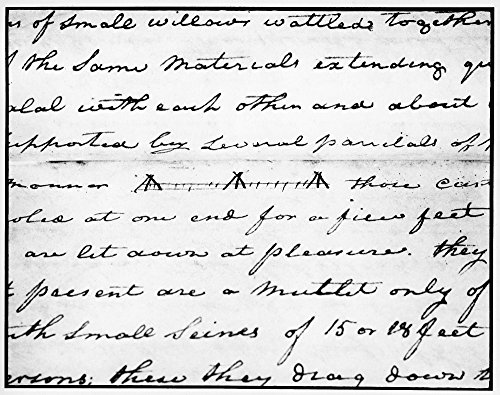 of small willows wattled together
the same materials extending
with each other and about
upported by several parrilals of
manner those
at one end for a fiew feet
are let down at pleasure. they
present are a mullet only of
ith small Seines of 15 or 18 feet
ersons; these they drag down